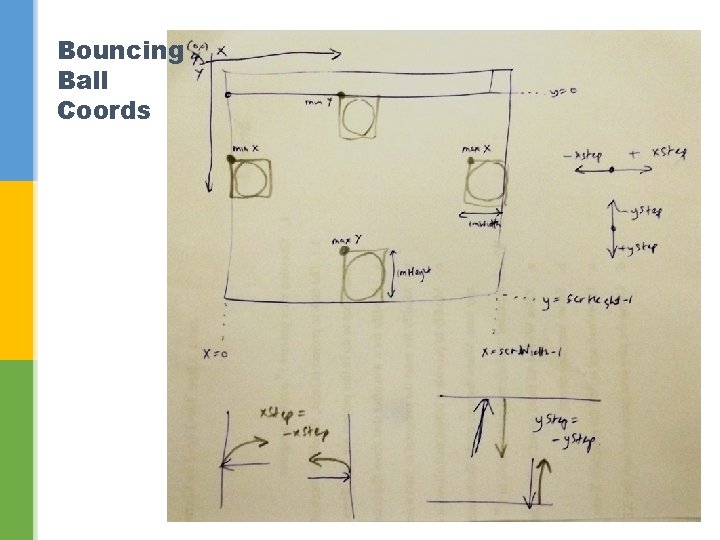 Bouncing
Ball
Coords
(0,0) X
Y
min Y
y=0
min X
max X
-xstep + xstep
imWidth
-ystep
+ystep
max Y
imHeight
y = scrHeight-1
X=0
X=scrWidth-1
xstep =
-xstep
ystep =
-ystep